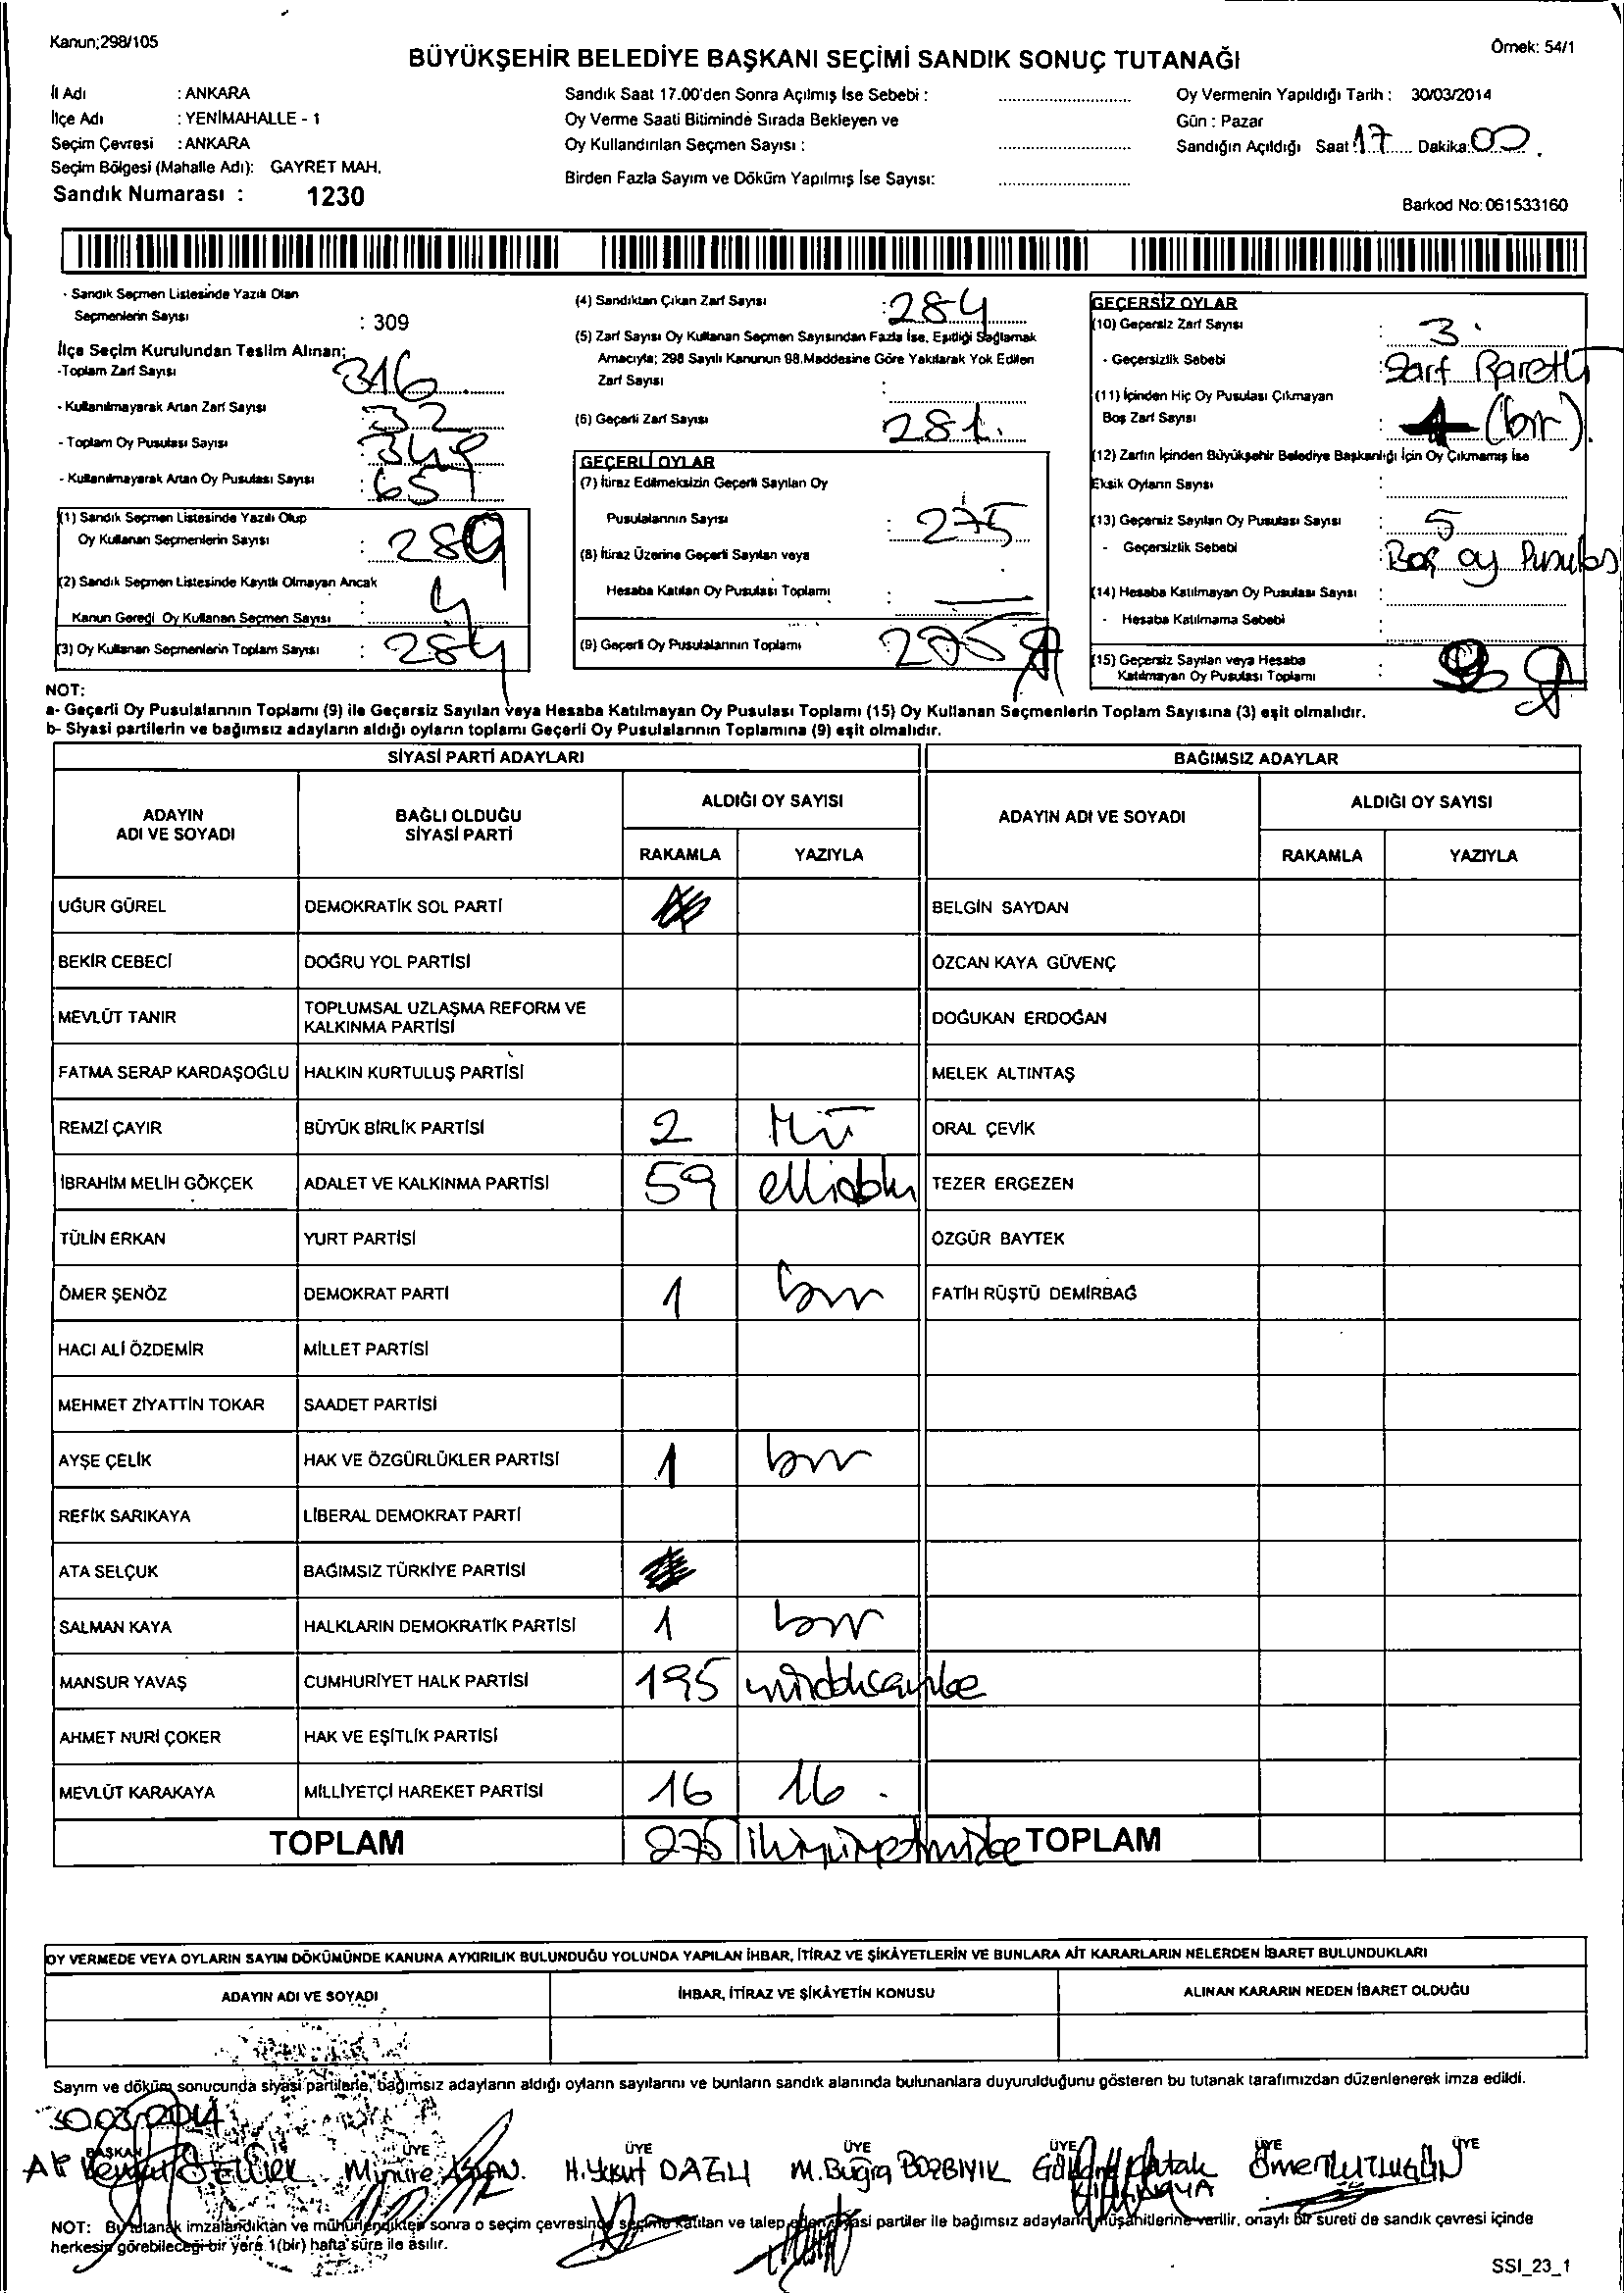 Kanun;298/105
Örnek: 54/1
BÜYÜKŞEHİR BELEDİYE BAŞKANI SEÇİMİ SANDIK SONUÇ TUTANAĞI
İl Adı : ANKARA
İlçe Adı : YENİMAHALLE - 1
Seçim Çevresi : ANKARA
Seçim Bölgesi (Mahalle Adı): GAYRET MAH.
Sandık Numarası : 1230
Sandık Saat 17.00'den Sonra Açılmış İse Sebebi :
Oy Verme Saati Bitiminde Sırada Bekleyen ve
Oy Kullandırılan Seçmen Sayısı :
Birden Fazla Sayım ve Döküm Yapılmış İse Sayısı:
Oy Vermenin Yapıldığı Tarih : 30/03/2014
Gün : Pazar
Sandığın Açıldığı Saat 17 Dakika: 00
Barkod No: 061533160
- Sandık Seçmen Listesinde Yazılı Olan
Seçmenlerin Sayısı : 309
İlçe Seçim Kurulundan Teslim Alınan;
-Toplam Zarf Sayısı 316
- Kullanılmayarak Artan Zarf Sayısı 32
- Toplam Oy Pusulası Sayısı
- Kullanılmayarak Artan Oy Pusulası Sayısı :
(1) Sandık Seçmen Listesinde Yazılı Olup
Oy Kullanan Seçmenlerin Sayısı :
(2) Sandık Seçmen Listesinde Kayıtlı Olmayan Ancak
Kanun Gereği Oy Kullanan Seçmen Sayısı : 4
(3) Oy Kullanan Seçmenlerin Toplam Sayısı : 284
(4) Sandıktan Çıkan Zarf Sayısı : 284
(5) Zarf Sayısı Oy Kullanan Seçmen Sayısından Fazla İse, Eşitliği Sağlamak
Amacıyla; 298 Sayılı Kanunun 98.Maddesine Göre Yakılarak Yok Edilen
Zarf Sayısı :
(6) Geçerli Zarf Sayısı : 281
GEÇERLİ OYLAR
(7) İtiraz Edilmeksizin Geçerli Sayılan Oy
Pusulalarının Sayısı : 275
(8) İtiraz Üzerine Geçerli Sayılan veya
Hesaba Katılan Oy Pusulası Toplamı :
(9) Geçerli Oy Pusulalarının Toplamı 275
GEÇERSİZ OYLAR
(10) Geçersiz Zarf Sayısı : 3
- Geçersizlik Sebebi : Zarf
(11) İçinden Hiç Oy Pusulası Çıkmayan
Boş Zarf Sayısı : 1 (bir).
(12) Zarfın İçinden Büyükşehir Belediye Başkanlığı İçin Oy Çıkmamış İse
Eksik Oyların Sayısı :
(13) Geçersiz Sayılan Oy Pusulası Sayısı : 5
- Geçersizlik Sebebi : Boş oy
(14) Hesaba Katılmayan Oy Pusulası Sayısı :
- Hesaba Katılmama Sebebi :
(15) Geçersiz Sayılan veya Hesaba
Katılmayan Oy Pusulası Toplamı :
NOT:
a- Geçerli Oy Pusulalarının Toplamı (9) ile Geçersiz Sayılan veya Hesaba Katılmayan Oy Pusulası Toplamı (15) Oy Kullanan Seçmenlerin Toplam Sayısına (3) eşit olmalıdır.
b- Siyasi partilerin ve bağımsız adayların aldığı oyların toplamı Geçerli Oy Pusulalarının Toplamına (9) eşit olmalıdır.
SİYASİ PARTİ ADAYLARI BAĞIMSIZ ADAYLAR
ADAYIN
ADI VE SOYADI
BAĞLI OLDUĞU
SİYASİ PARTİ
ALDIĞI OY SAYISI
RAKAMLA YAZIYLA
ADAYIN ADI VE SOYADI
ALDIĞI OY SAYISI
RAKAMLA YAZIYLA
UĞUR GÜREL DEMOKRATİK SOL PARTİ BELGİN SAYDAN
BEKİR CEBECİ DOĞRU YOL PARTİSİ ÖZCAN KAYA GÜVENÇ
MEVLÜT TANIR TOPLUMSAL UZLAŞMA REFORM VE
KALKINMA PARTİSİ DOĞUKAN ERDOĞAN
FATMA SERAP KARDAŞOĞLU HALKIN KURTULUŞ PARTİSİ MELEK ALTINTAŞ
REMZİ ÇAYIR BÜYÜK BİRLİK PARTİSİ 2 ORAL ÇEVİK
İBRAHİM MELİH GÖKÇEK ADALET VE KALKINMA PARTİSİ 59 TEZER ERGEZEN
TÜLİN ERKAN YURT PARTİSİ ÖZGÜR BAYTEK
ÖMER ŞENÖZ DEMOKRAT PARTİ 1 bir FATİH RÜŞTÜ DEMİRBAĞ
HACI ALİ ÖZDEMİR MİLLET PARTİSİ
MEHMET ZİYATTİN TOKAR SAADET PARTİSİ
AYŞE ÇELİK HAK VE ÖZGÜRLÜKLER PARTİSİ 1 bir
REFİK SARIKAYA LİBERAL DEMOKRAT PARTİ
ATA SELÇUK BAĞIMSIZ TÜRKİYE PARTİSİ
SALMAN KAYA HALKLARIN DEMOKRATİK PARTİSİ 1 bir
MANSUR YAVAŞ CUMHURİYET HALK PARTİSİ 195
AHMET NURİ ÇOKER HAK VE EŞİTLİK PARTİSİ
MEVLÜT KARAKAYA MİLLİYETÇİ HAREKET PARTİSİ 16 16
TOPLAM 275 TOPLAM
OY VERMEDE VEYA OYLARIN SAYIM DÖKÜMÜNDE KANUNA AYKIRILIK BULUNDUĞU YOLUNDA YAPILAN İHBAR, İTİRAZ VE ŞİKÂYETLERİN VE BUNLARA AİT KARARLARIN NELERDEN İBARET BULUNDUKLARI
ADAYIN ADI VE SOYADI İHBAR, İTİRAZ VE ŞİKÂYETİN KONUSU ALINAN KARARIN NEDEN İBARET OLDUĞU
Sayım ve döküm sonucunda siyasi partilerle, bağımsız adayların aldığı oyların sayılarını ve bunların sandık alanında bulunanlara duyurulduğunu gösteren bu tutanak tarafımızdan düzenlenerek imza edildi.
30.03.2014
BAŞKAN ÜYE ÜYE ÜYE ÜYE ÜYE ÜYE
Münire H.Yusuf DAĞLI M.Buğra BOZBIYIK
NOT: Bu tutanak imzalandıktan ve mühürlendikten sonra o seçim çevresinde seçime katılan ve talep eden siyasi partiler ile bağımsız adayların müşahitlerine verilir, onaylı bir sureti de sandık çevresi içinde
herkesin görebileceği bir yere 1(bir) hafta süre ile asılır.
SSI_23_1